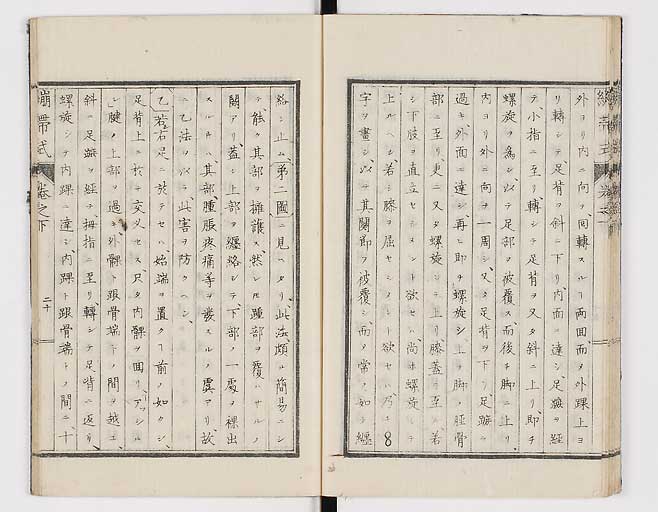 外ヨリ内ニ向ヲ回轉スル丁両回而ヲ外踝上ヨ
リ轉シテ足背ヲ斜ニ下リ内面ニ達シ足蹠ヲ経
テ小指ニ至リ轉シテ足背ヲ又タ斜ニ上リ即チ
螺旋ヲ為シ以テ足部ヲ被覆ス而後チ脚ニ上リ
内ヨリ外ニ向ヲ一周シ又タ足背ヲ下リ足蹠ニ
過キ外面ニ達シ再ヒ即ヲ螺旋シ上ヲ脚ノ脛骨
部ニ至リ更ニ又タ螺旋シテ上リ膝蓋ニ至ル若
シ下肢ヲ直立セシメント欲セハ尚ホ螺旋シテ
上ルヘシ若シ膝ヲ屈セシメント欲セハ乃チ8
字ヲ畫シ以テ其関節ヲ被覆シ而ヲ常ノ如ク纏
絡シ止ム第二圖ニ見ヘタリ此法頗ル簡易ニシ
テ能ク其部ヲ擁護ス然レ𪜈踵部ヲ覆ハサルノ
闕アリ蓋シ上部ヲ纏絡シテ下部ノ一處ヲ裸出
スルハ其部腫脹疼痛等ヲ發スルノ虞アリ故
ニ乙法ヲ以テ此害ヲ防クヘシ
乙若右足ニ於テセハ始端ヲ置ク丁前ノ如クシ
足背上ニ於テ交叉セス只タ内髁ヲ回リアッシル
腱ノ上部ヲ過キ外髁ト跟骨端トノ間ヲ越エ
斜ニ足蹠ヲ経ヲ拇指ニ至リ轉シテ足背ニ返リ
螺旋シテ内踝ニ達シ内踝ト跟骨端トノ間ニ十
繃帯式 巻之下
二十